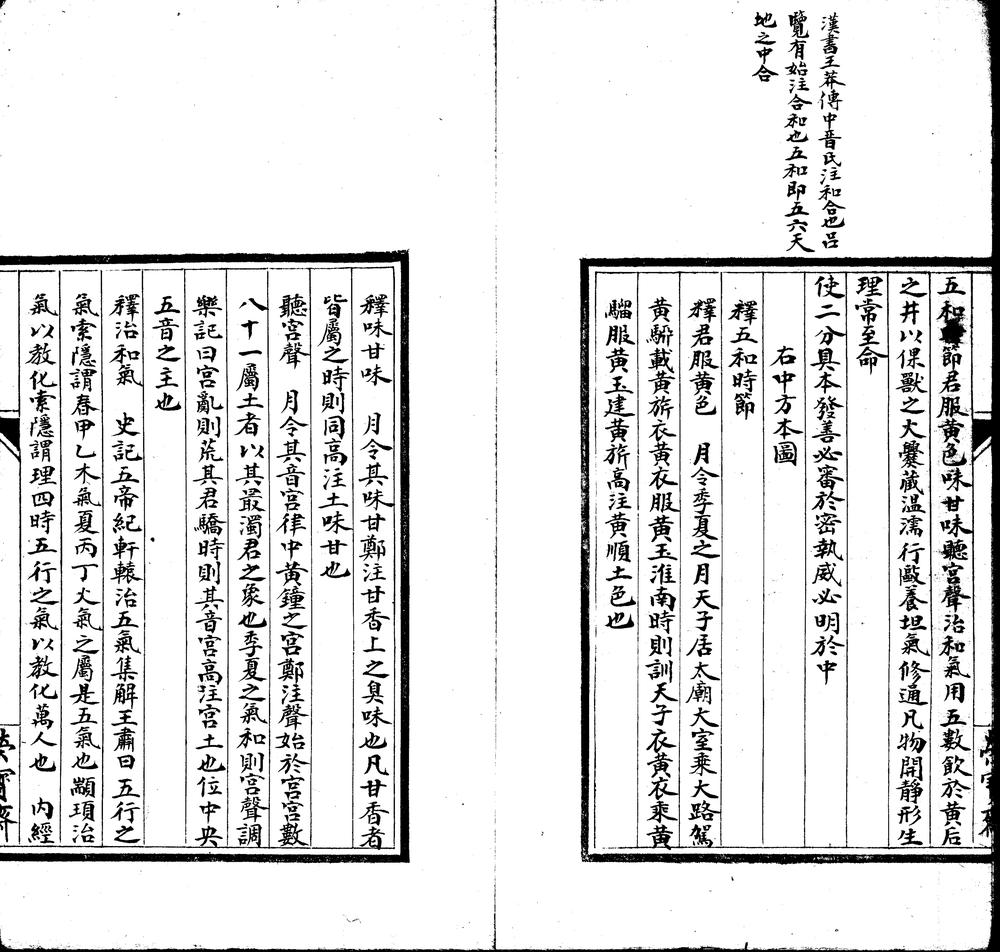 漢書王莽傳中晉氏注和合也呂
覽有始注合和也五和即五六天
地之中合
五和時節君服黃色味甘味聽宮聲治和氣用五數飲於黃后
之井以倮獸之火爨藏温濡行敺養坦氣修通凡物開靜形生
理常至命
使二分具本發善必審於密執威必明於中
右中方本圖
釋五和時節
釋君服黃色　月令季夏之月天子居太廟大室乘大路駕
黃騮載黃旂衣黃衣服黃玉淮南時則訓天子衣黃衣乘黃
騮服黃玉建黃旂高注黃順土色也
釋味甘味　月令其味甘鄭注甘香土之臭味也凡甘香者
皆屬之時則同高注土味甘也
聽宮聲　月令其音宮律中黃鐘之宮鄭注聲始於宮宮數
八十一屬土者以其最濁君之象也季夏之氣和則宮聲調
樂記曰宮亂則荒其君驕時則其音宮高注宮土也位中央
五音之主也
釋治和氣　史記五帝紀軒轅治五氣集解王肅曰五行之
氣索隱謂春甲乙木氣夏丙丁火氣之屬是五氣也顓頊治
氣以教化索隱謂理四時五行之氣以教化萬人也　內經